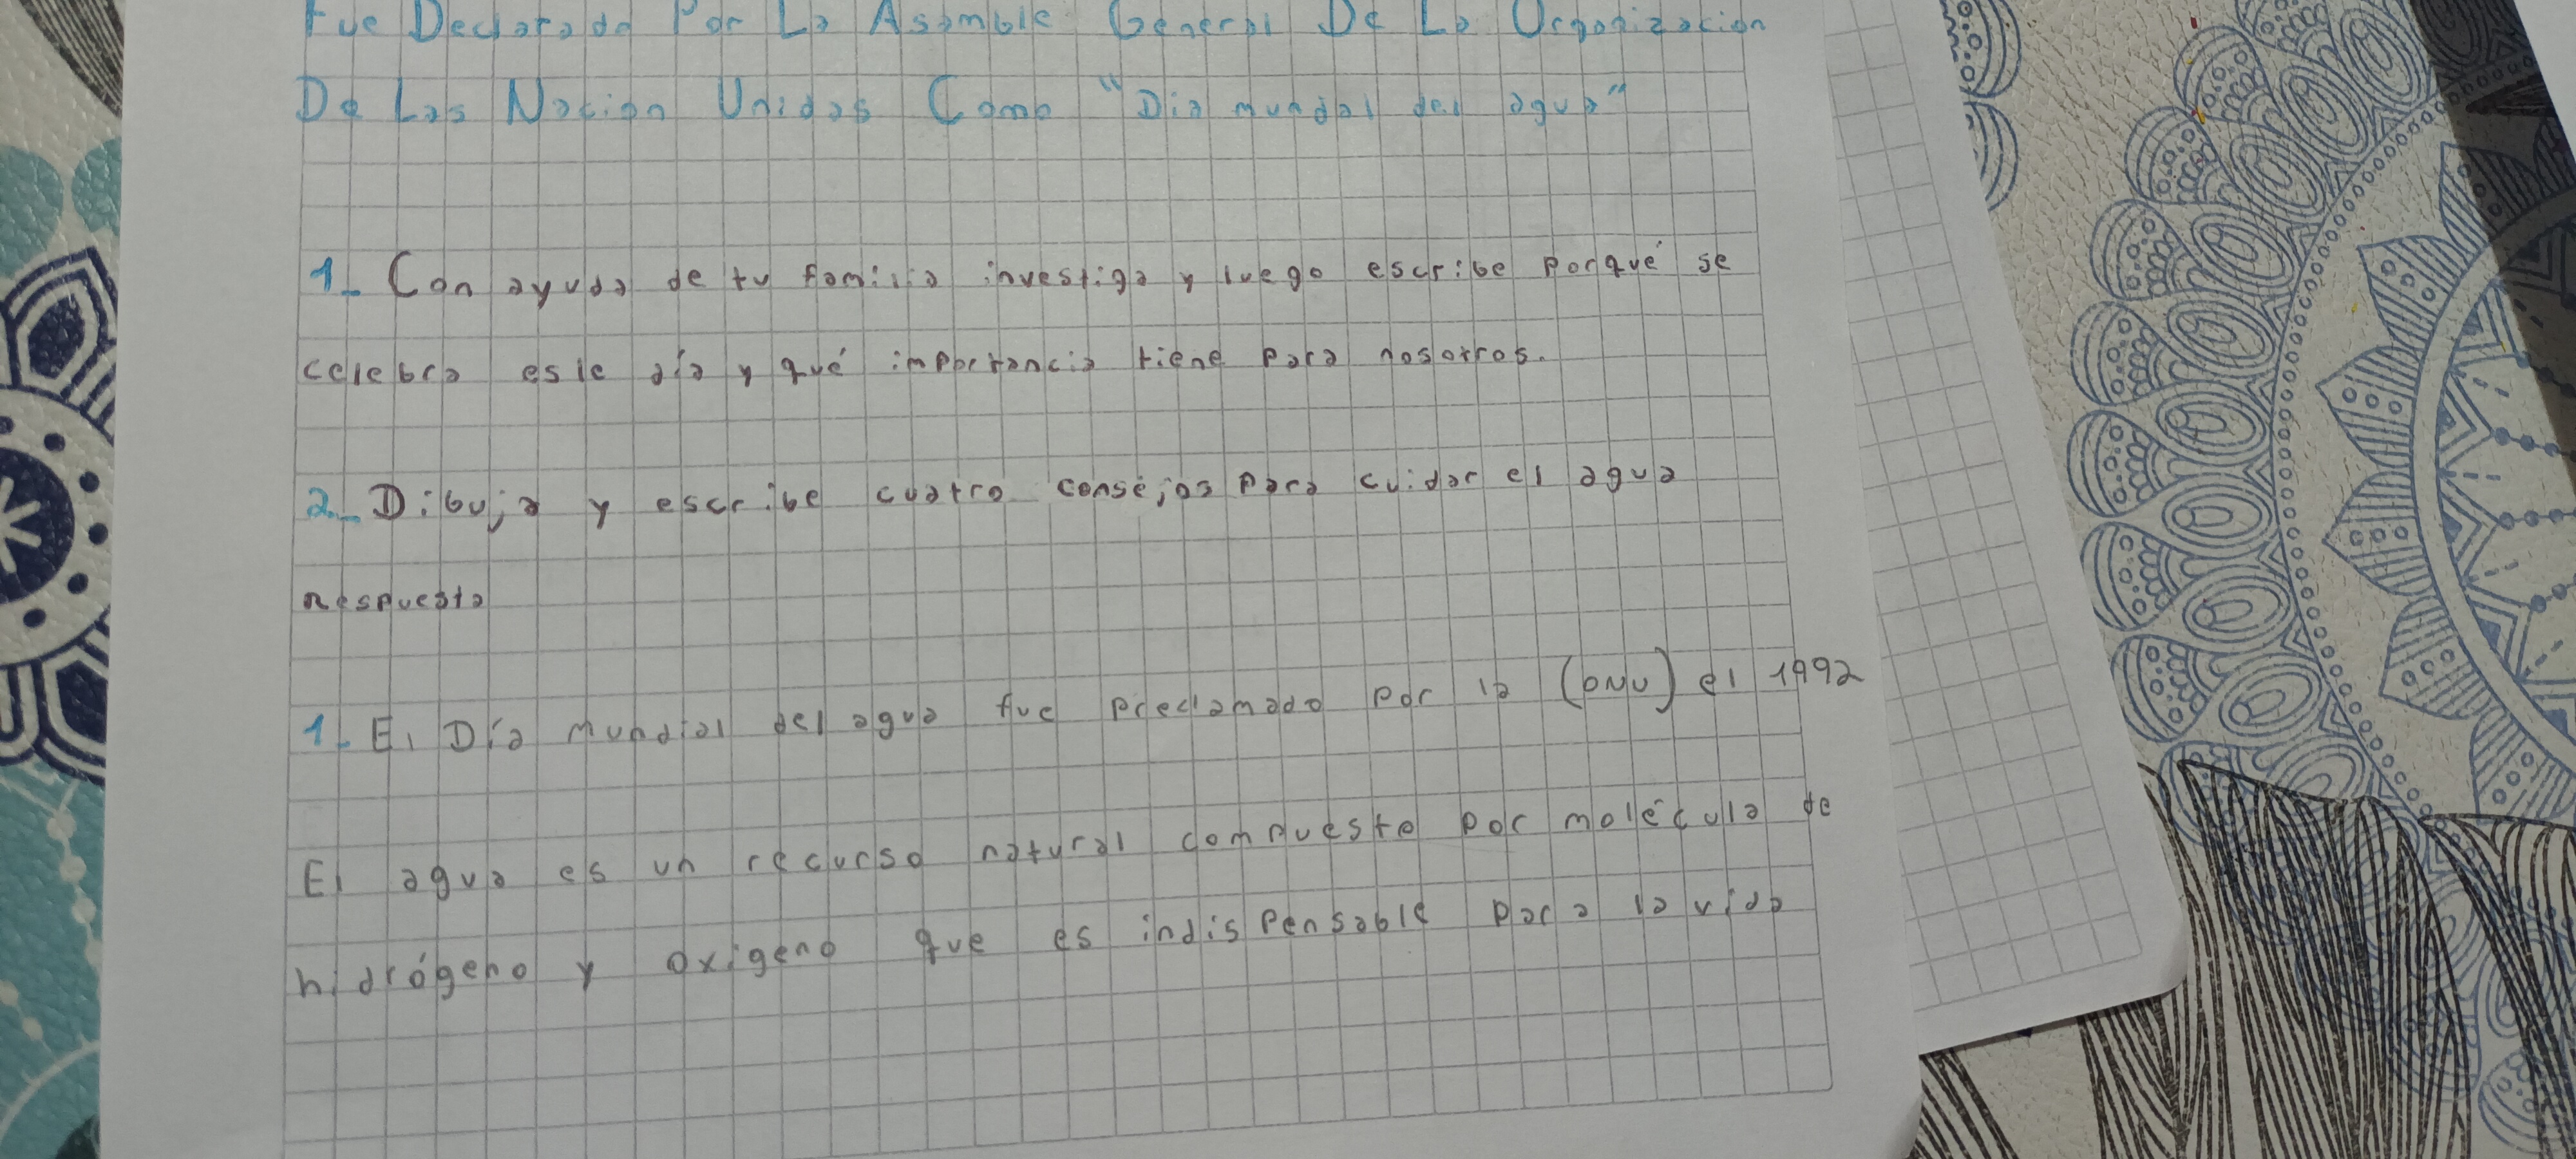 Fue Declarado Por La Asamble General De La Organización
De Las Nación Unidas Como "Dia mundal del agua"
1_ Con ayuda de tu familia investiga y luego escribe porqué se
celebra este día y qué importancia tiene para nosotros.
2_ Dibuja y escribe cuatro consejos para cuidar el agua
Respuesta
1_ El Día mundial del agua fue preclamado por la (ONU) el 1992
El agua es un recurso natural compuesto por molécula de
hidrógeno y oxigeno que es indispensable para la vida